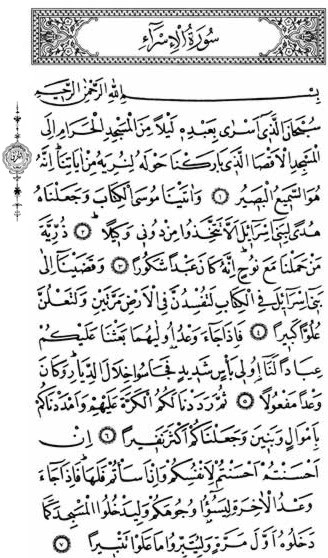 سُورَةُ الْإِسْرَاءِ
بِسْمِ اللّٰهِ الرَّحْمٰنِ الرَّحِيمِ
سُبْحَانَ الَّذِي أَسْرَى بِعَبْدِهِ لَيْلًا مِنَ الْمَسْجِدِ الْحَرَامِ إِلَى
الْمَسْجِدِ الْأَقْصَا الَّذِي بَارَكْنَا حَوْلَهُ لِنُرِيَهُ مِنْ آيَاتِنَا إِنَّهُ
هُوَ السَّمِيعُ الْبَصِيرُ ١ وَآتَيْنَا مُوسَى الْكِتَابَ وَجَعَلْنَاهُ
هُدًى لِبَنِي إِسْرَائِيلَ أَلَّا تَتَّخِذُوا مِنْ دُونِي وَكِيلًا ٢ ذُرِّيَّةَ
مَنْ حَمَلْنَا مَعَ نُوحٍ إِنَّهُ كَانَ عَبْدًا شَكُورًا ٣ وَقَضَيْنَا إِلَى
بَنِي إِسْرَائِيلَ فِي الْكِتَابِ لَتُفْسِدُنَّ فِي الْأَرْضِ مَرَّتَيْنِ وَلَتَعْلُنَّ
عُلُوًّا كَبِيرًا ٤ فَإِذَا جَاءَ وَعْدُ أُولٰيهُمَا بَعَثْنَا عَلَيْكُمْ
عِبَادًا لَنَا أُولِي بَأْسٍ شَدِيدٍ فَجَاسُوا خِلَالَ الدِّيَارِ وَكَانَ
وَعْدًا مَفْعُولًا ٥ ثُمَّ رَدَدْنَا لَكُمُ الْكَرَّةَ عَلَيْهِمْ وَأَمْدَدْنَاكُمْ
بِأَمْوَالٍ وَبَنِينَ وَجَعَلْنَاكُمْ أَكْثَرَ نَفِيرًا ٦ إِنْ
أَحْسَنْتُمْ أَحْسَنْتُمْ لِأَنْفُسِكُمْ وَإِنْ أَسَأْتُمْ فَلَهَا فَإِذَا جَاءَ
وَعْدُ الْآخِرَةِ لِيَسُوؤُا وُجُوهَكُمْ وَلِيَدْخُلُوا الْمَسْجِدَ كَمَا
دَخَلُوهُ أَوَّلَ مَرَّةٍ وَلِيُتَبِّرُوا مَا عَلَوْا تَتْبِيرًا ٧